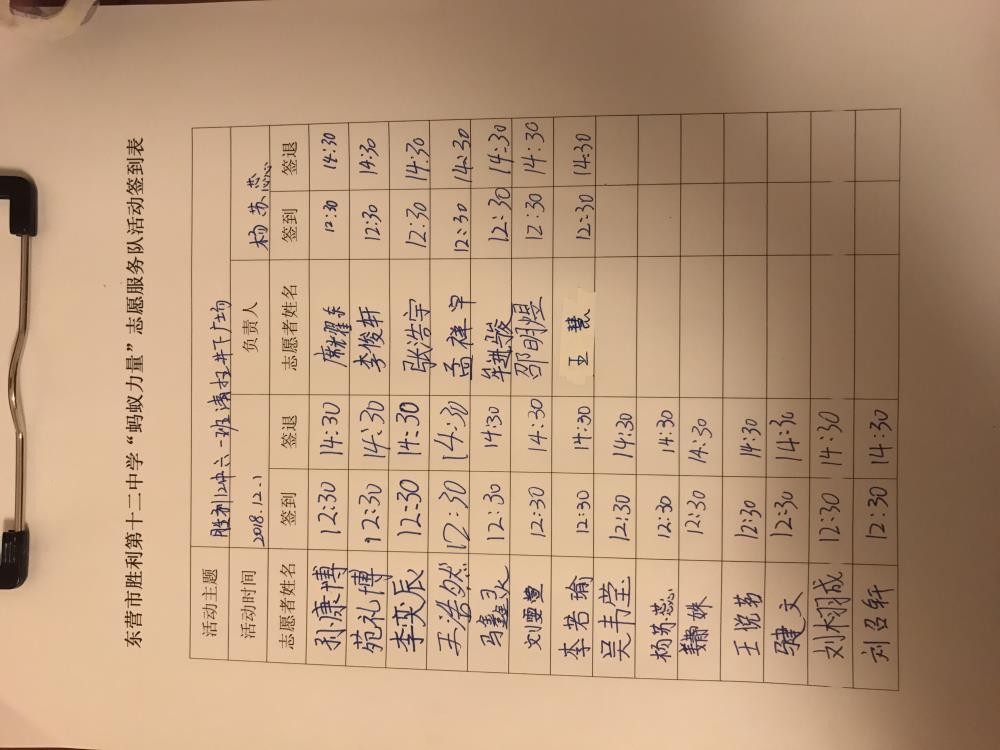 东营市胜利第十二中学“蚂蚁力量”志愿服务队活动签到表
活动主题 胜利12中六一班清扫井下广场
活动时间 2018.12.1 负责人 杨苏蕊
志愿者姓名 签到 签退 志愿者姓名 签到 签退
孙康博 12:30 14:30 席耀东 12:30 14:30
苑礼博 12:30 14:30 李俊轩 12:30 14:30
李奕辰 12:30 14:30 张浩宇 12:30 14:30
王浩然 12:30 14:30 孟祥宇 12:30 14:30
马鑫 12:30 14:30 12:30 14:30
刘雯萱 12:30 14:30 邵明煜 12:30 14:30
李若瑜 12:30 14:30 王慧 12:30 14:30
吴韦莹 12:30 14:30
杨苏蕊 12:30 14:30
姝 12:30 14:30
王悦茗 12:30 14:30
文 12:30 14:30
刘栩成 12:30 14:30
刘召轩 12:30 14:30